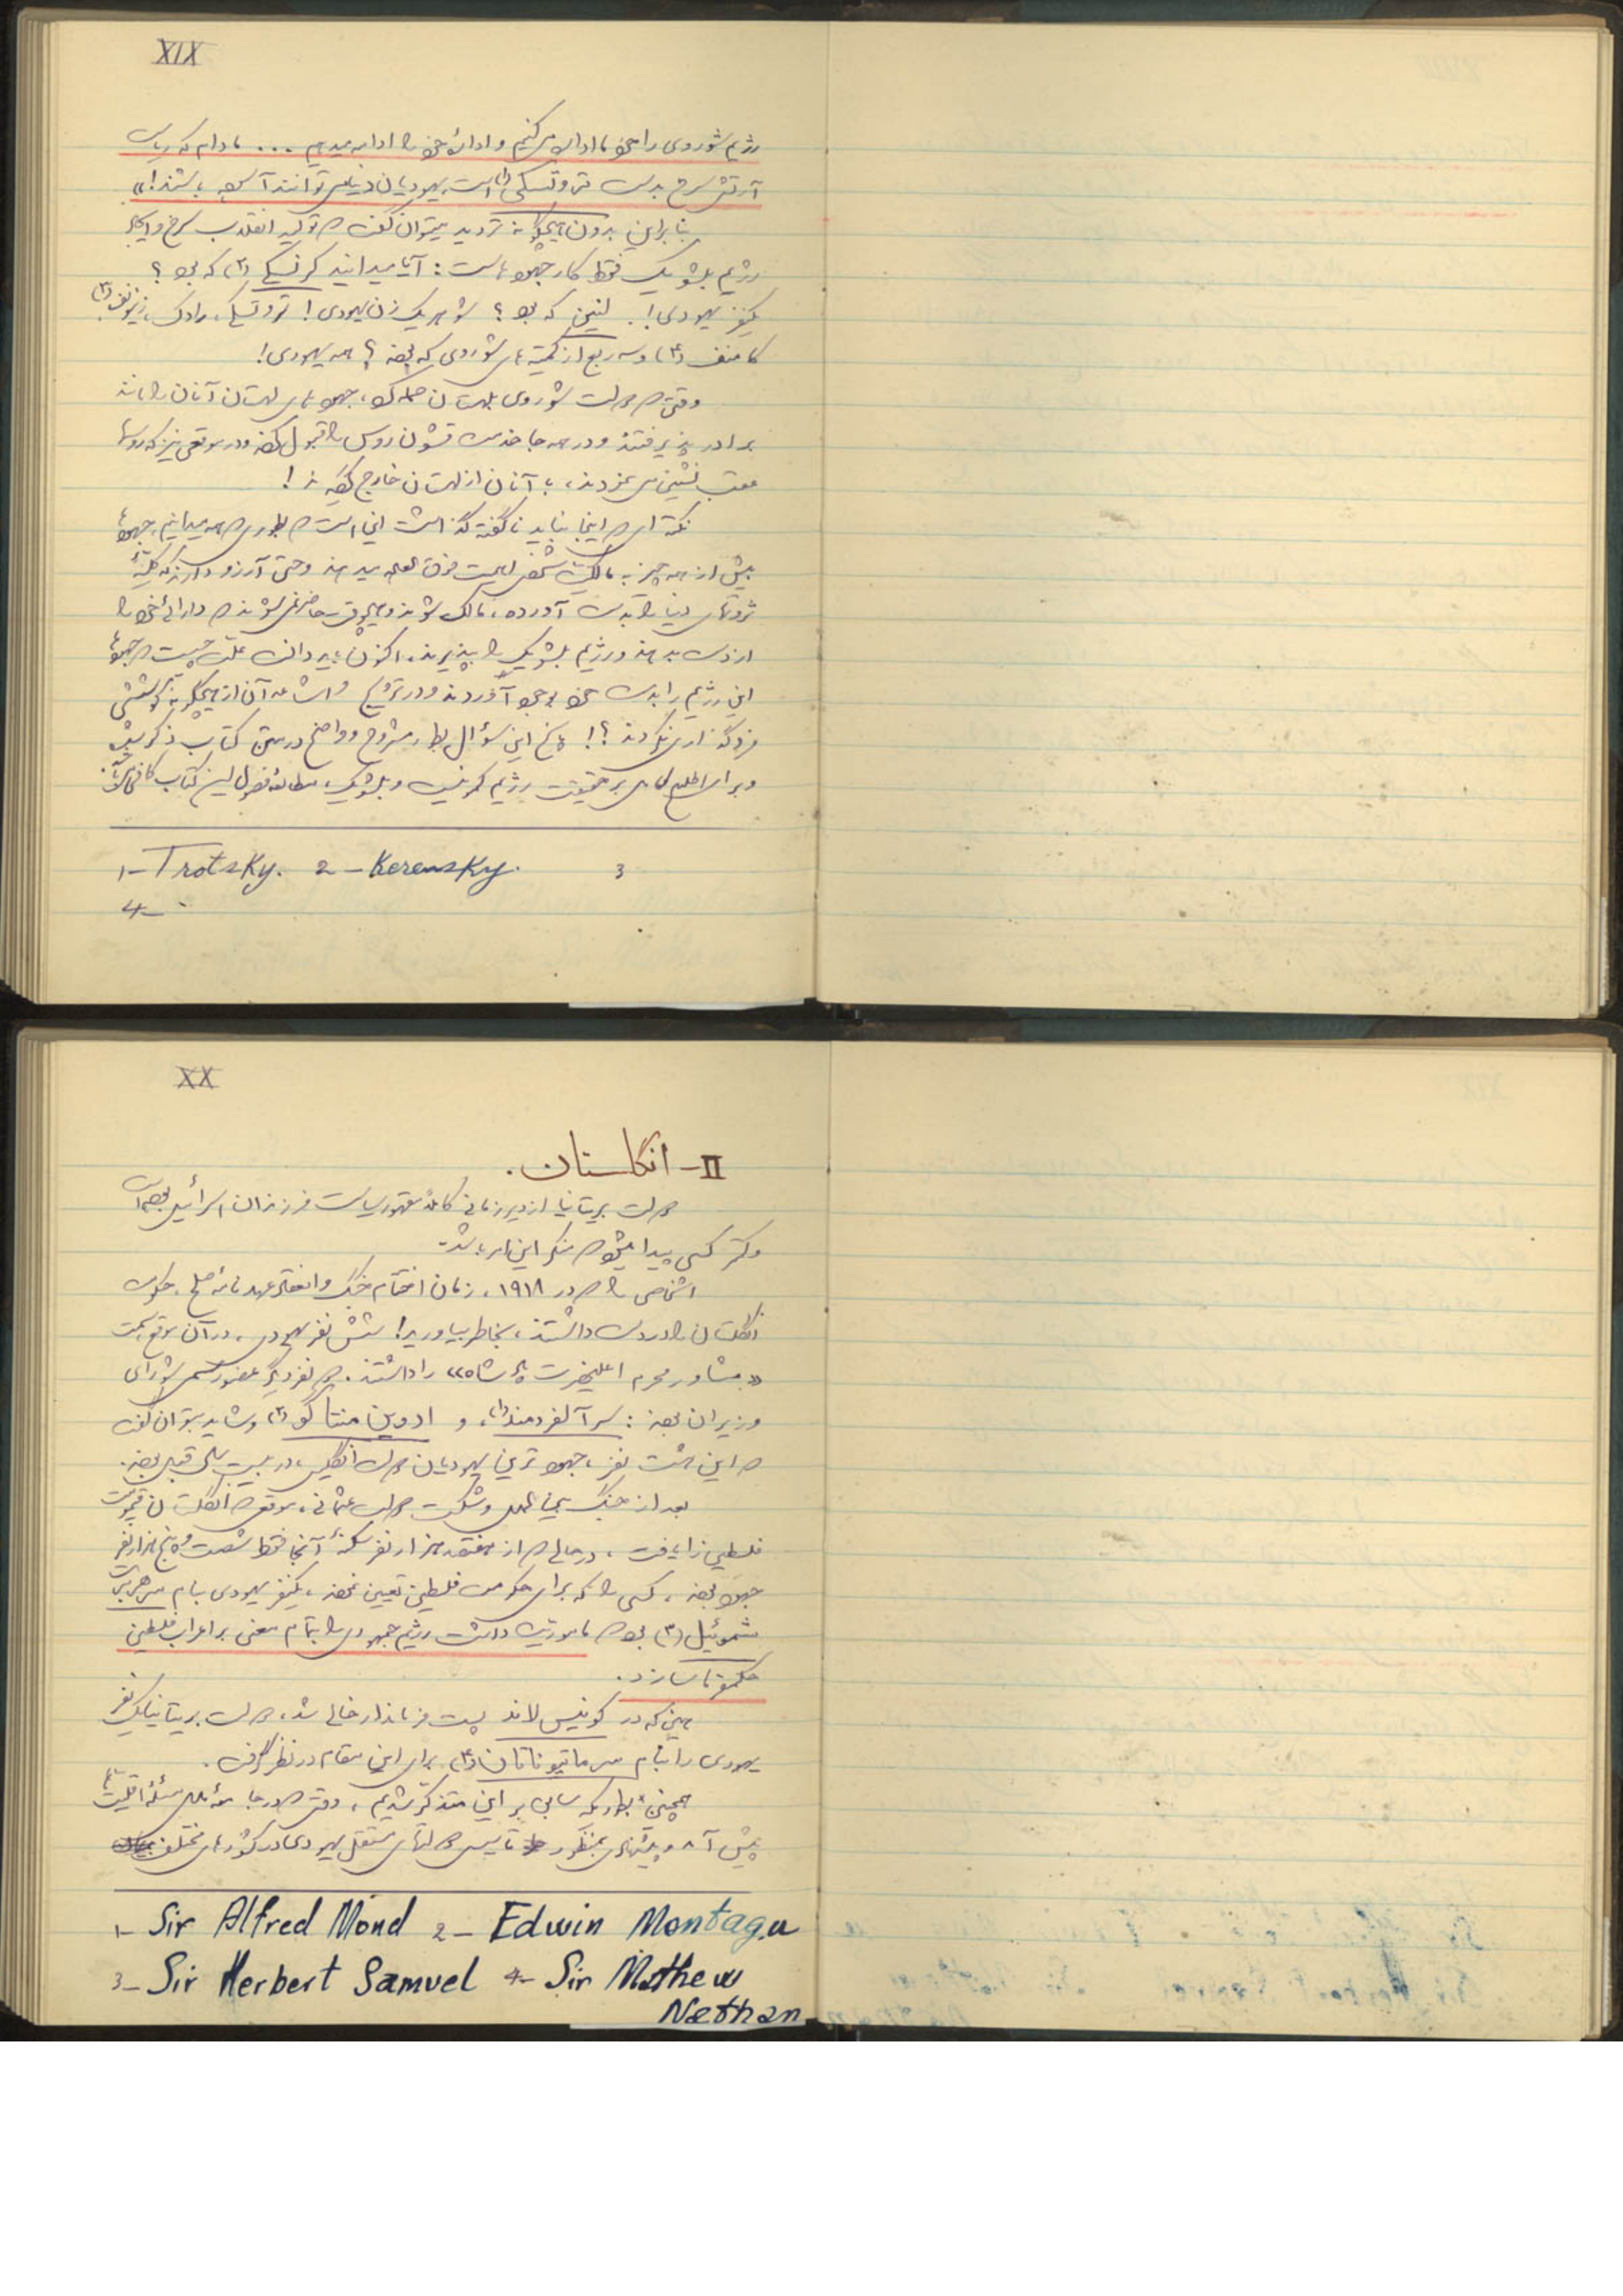 XIX
رژیم شوروی را ما اداره می‌کنیم و ادارهٔ خود را ادامه میدهیم ... مادام که ریاست
آرتش سرخ بدست تروتسکی (۱) است یهودیان دنیا میتوانند آسوده باشند!»
بنابراین بدون هیچگونه تردید میتوان گفت که تولید انقلاب سرخ و ایجاد
رژیم بلشویک فقط کار جهودهاست: آیا میدانید کرنسکی (۲) که بود؟
یکنفر یهودی! لنین که بود؟ شوهر یک زن یهودی! تروتسکی، رادک، زینونف (۳)
کامنف (۴) و سه ربع از کمیته‌های شوروی که بودند؟ همه یهودی!
وقتی که دولت شوروی بلهستان حمله کرد، جهودهای لهستان آنان را مانند
برادر پذیرفتند و در همه جا خدمت قشون روس را قبول کردند و در موقعی نیز که روسها
عقب نشینی می‌نمودند، با آنان از لهستان خارج گردیدند!
نکته‌ای که اینجا نباید ناگفته گذاشت این است که بطوری که همه میدانیم، جهودها
بیش از همه چیز به مالکیت شخصی اهمیت فوق العاده میدهند و حتی آرزو دارند که کلیهٔ
ثروتهای دنیا را بدست آورده، مالک شوند و هیچوقت حاضر نمی‌شوند که دارائی خود را
از دست بدهند و رژیم بلشویک را بپذیرند. اکنون باید دانست علت چیست که جهودها
این رژیم را بدست خود بوجود آوردند و در ترویج و اشاعهٔ آن از هیچگونه کوششی
فروگذاری نکردند؟! پاسخ این سؤال بطور مشروح و واضح در متن کتاب ذکر شده
و برای اطلاع کامل بر حقیقت رژیم کمونیست و بلشویک، مطالعهٔ فصول این کتاب کافی
1- Trotsky. 2- Kerensky. 3
4-
XX
II- انگلستان.
دولت بریتانیا از دیر زمانی کاملاً مقهور سیاست فرزندان اسرائیل بوده است
و کمتر کسی پیدا میشود که منکر این امر باشد.
اشخاصی را که در ۱۹۱۸، زمان اختتام جنگ و انعقاد عهدنامهٔ صلح، حکومت
انگلستان را در دست داشتند، بخاطر بیاورید! شش نفر یهودی، در آن موقع سمت
«مشاور محرم اعلیحضرت پادشاه» را داشتند. دو نفر دیگر عضو رسمی شورای
وزیران بودند: سر آلفرد مند (۱)، و ادوین منتاگو (۲) و شاید بتوان گفت
که این هشت نفر، جهودترین یهودیان دولت انگلیس، در بیست سال قبل بودند.
بعد از جنگ بین الملل و شکست دولت عثمانی، موقعی که انگلستان قیمومت
فلسطین را یافت، در حالی که از هفتصد هزار نفر سکنهٔ آنجا فقط شصت و پنج هزار نفر
جهود بودند، کسی را که برای حکومت فلسطین تعیین نمودند، یکنفر یهودی بنام سر هربرت
شموئیل (۳) بود که مأموریت داشت رژیم جهودی را بتمام معنی بر اعراب فلسطین
حکمفرما سازد.
همین که در کوئینس لاند پست فرماندار خالی شد، دولت بریتانیا یک نفر
یهودی را بنام سر ماتیو ناتان (۴) برای این مقام در نظر گرفت.
همچنین بطوریکه سابق بر این متذکر شدیم، وقتی که در جامعهٔ ملل مسئلهٔ اقلیت‌ها
پیش آمد و پیشنهادی بمنظور تأسیس دولتهای مستقل یهودی در کشورهای مختلف
1- Sir Alfred Mond 2- Edwin Montagu
3- Sir Herbert Samuel 4- Sir Mathew
Nathan